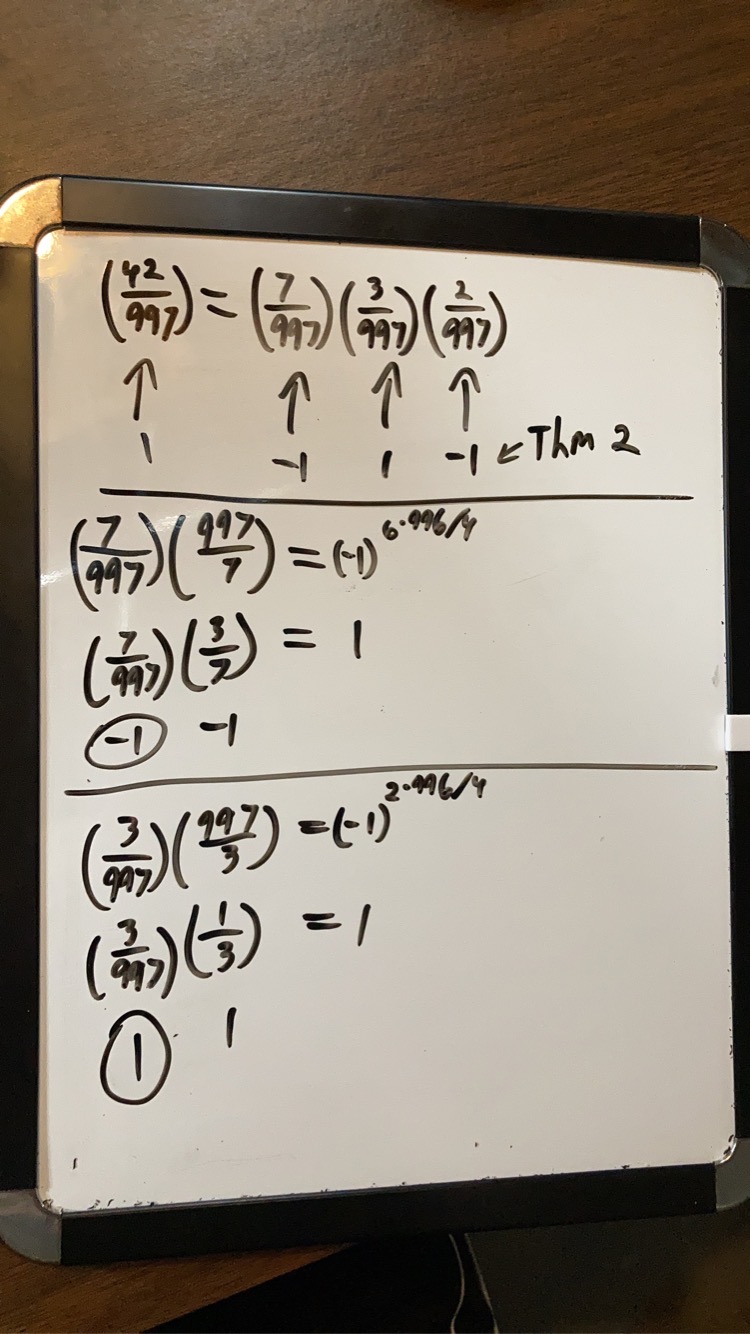 (42/997) = (7/997)(3/997)(2/997)
↑ ↑ ↑ ↑
1 -1 1 -1 ← Thm 2
(7/997)(997/7) = (-1)^{6·996/4}
(7/997)(3/7) = 1
-1 -1
(3/997)(997/3) = (-1)^{2·996/4}
(3/997)(1/3) = 1
1 1